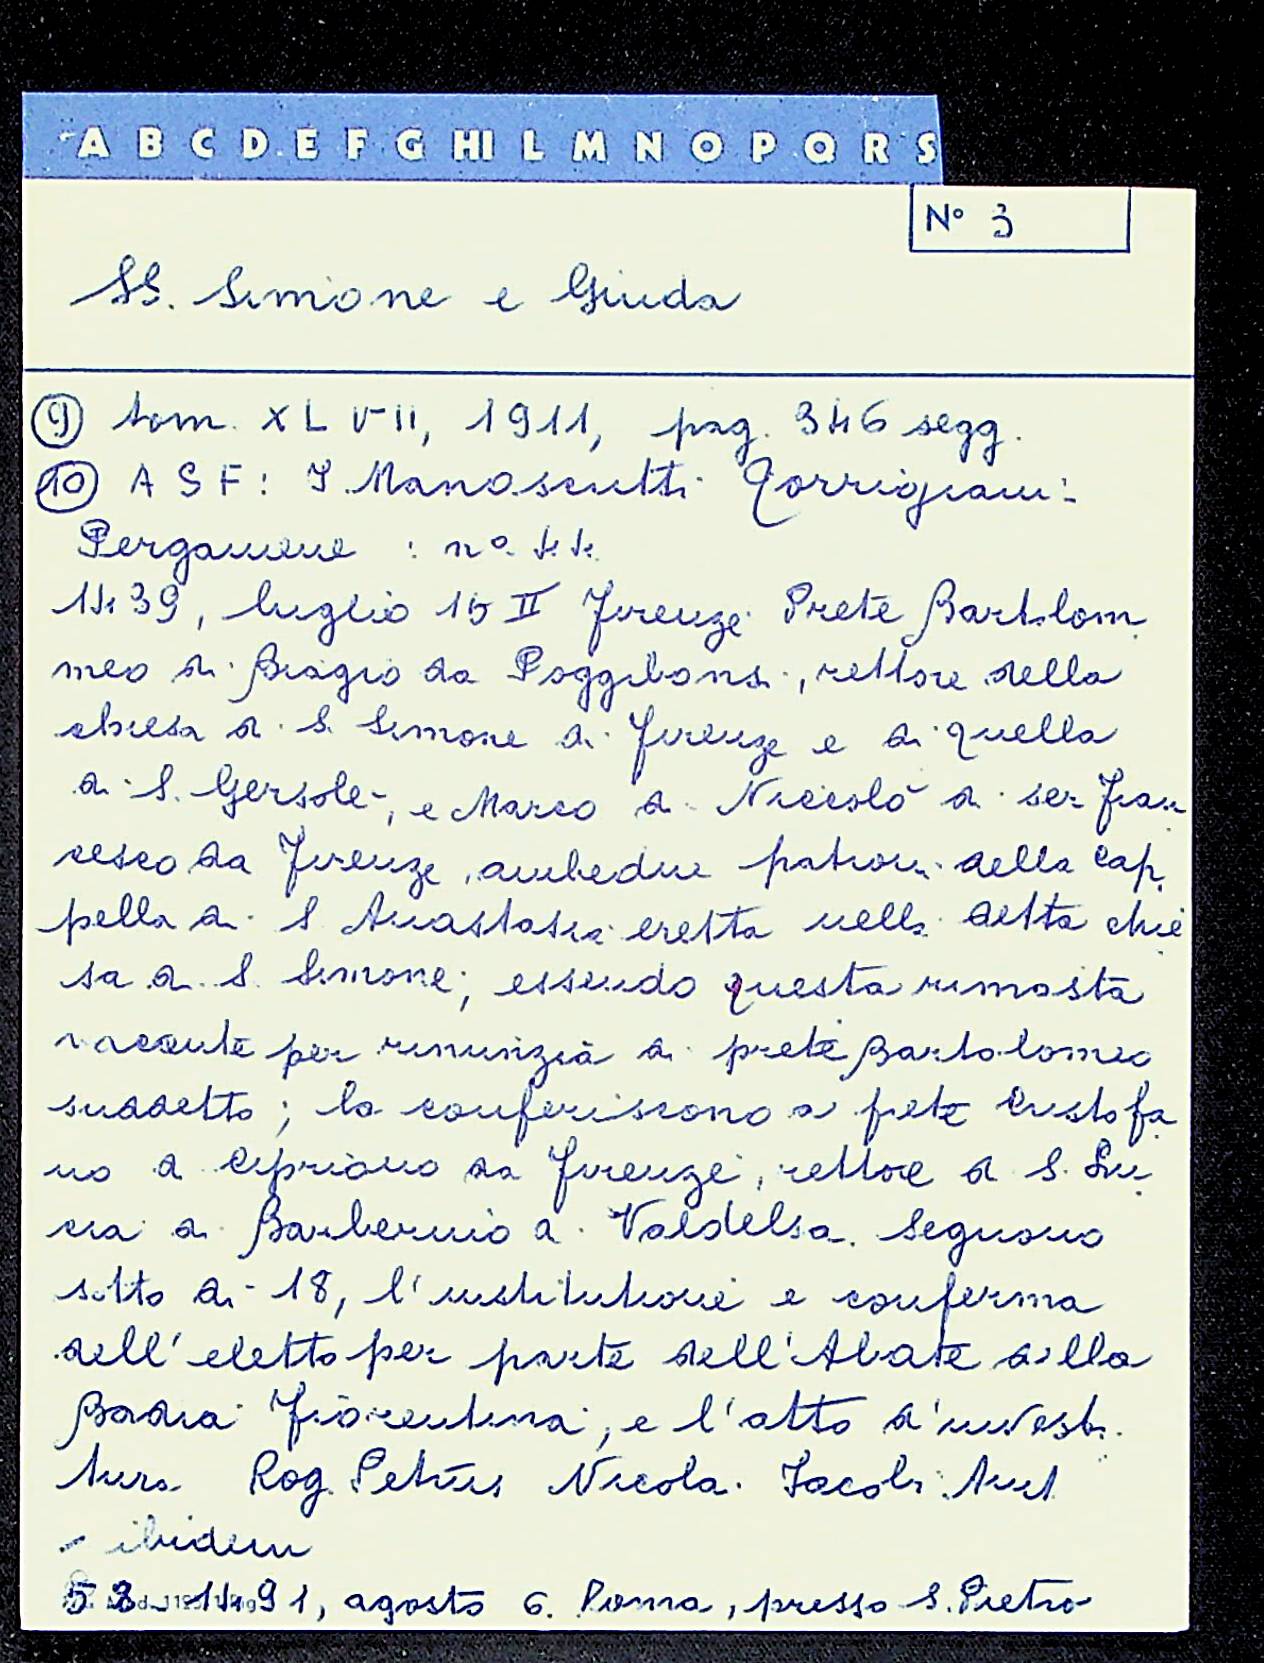 A B C D E F G HI L M N O P Q R S
N° 3
SS. Simone e Giuda
9 tom. XLVII, 1911, pag. 346 segg.
10 ASF: I Manoscritti Torrigiani:
Pergamene : n° 44.
1439, luglio 15 II Firenze. Prete Bartolom
meo di Biagio da Poggibonsi, rettore della
chiesa di S. Simone di Firenze e di quella
di S. Gersolè, e Marco di Niccolò di ser Fran
cesco da Firenze, ambedue patroni della cap
pella di S Anastasia eretta nella detta chie
sa di S. Simone; essendo questa rimasta
vacante per rinunzia di prete Bartolomeo
suddetto; la conferiscono a prete Cristofa
no di Cipriano da Firenze, rettore di S. Lu
cia di Barberino di Valdelsa. Seguono
sotto dì 18, l'institutione e conferma
dell'eletto per parte dell'Abate della
Badia Fiorentina, e l'atto d'investi
tura Rog. Petrus Nicolai Iacobi
- ibidem
53 1491, agosto 6. Roma, presso S. Pietro